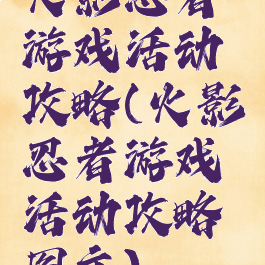 火影忍者
游戏活动
攻略(火影
忍者游戏
活动攻略
图文)